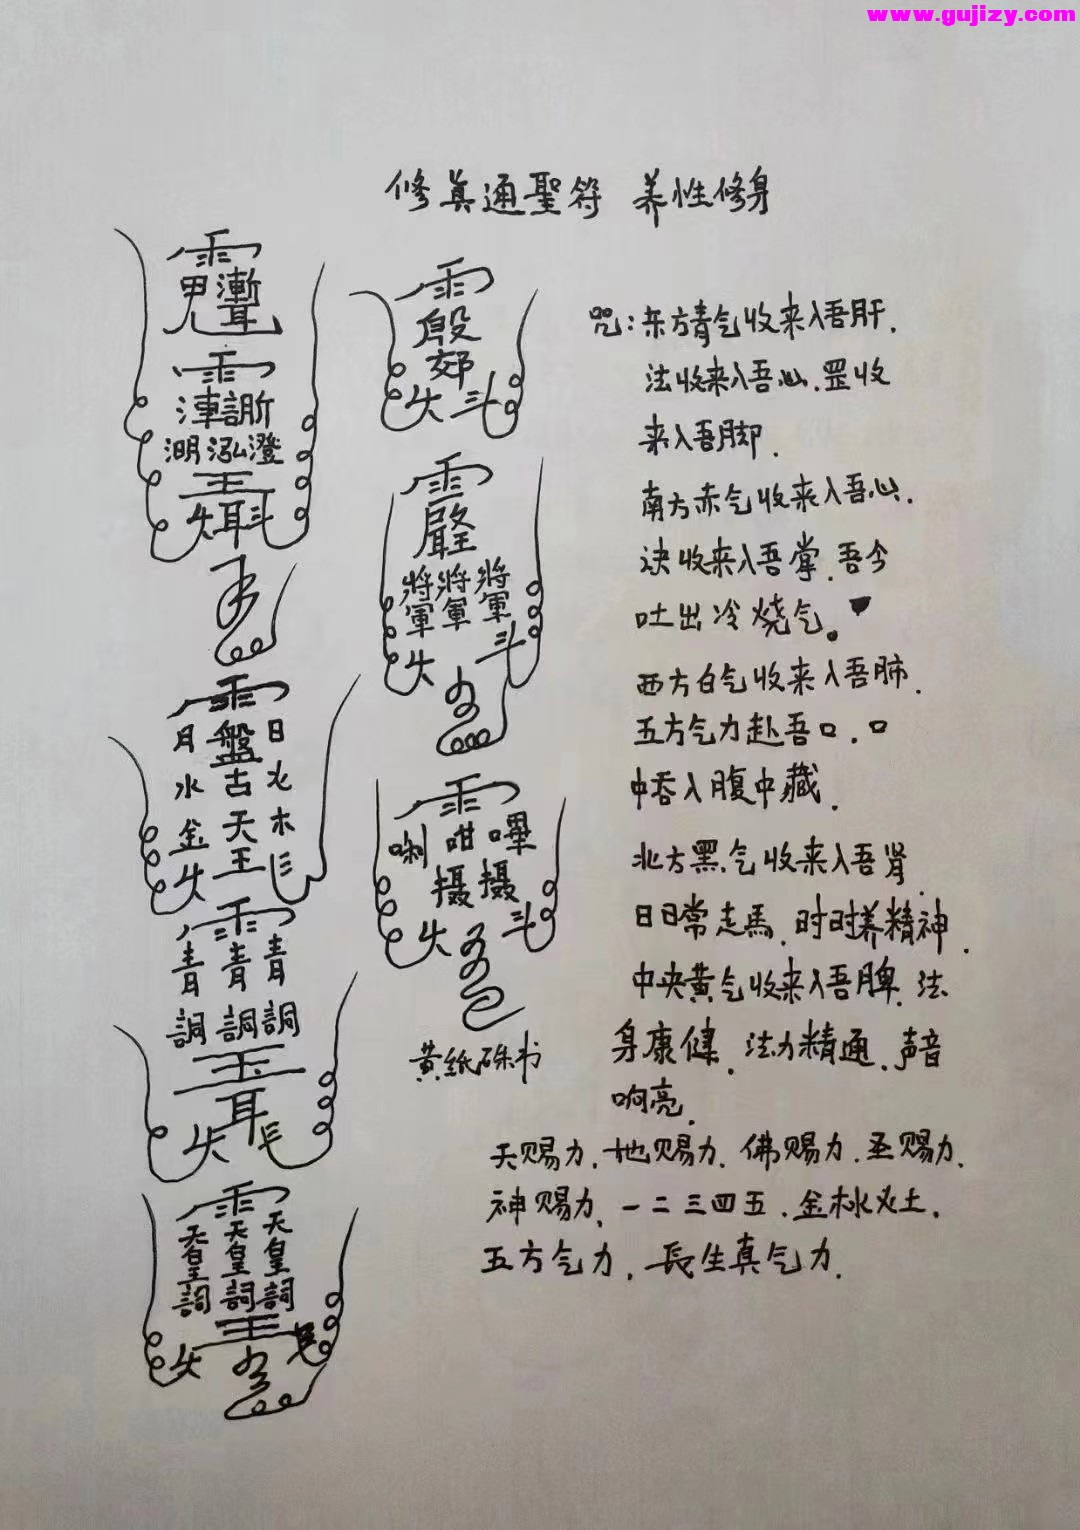 www.gujizy.com
修真通聖符 养性修身
咒：东方青气收来入吾肝．
法收来入吾心．罡收
来入吾脚．
南方赤气收来入吾心．
决收来入吾掌．吾今
吐出冷烧气。
西方白气收来入吾肺．
五方气力赴吾口．口
中吞入腹中藏．
北方黑气收来入吾肾．
日日常走馬．时时养精神．
中央黄气收来入吾脾．法
身康健．法力精通．声音
响亮．
天赐力．地赐力．佛赐力．圣赐力．
神赐力．一二三四五．金木水火土．
五方气力．長生真气力．
甲 漸耳
雨
澄
王
耳 斗
雨
月 盤 日
水 古 火
金 天 木
王
雨
青 青 青
詞 詞 詞
玉
耳
雨
天皇詞 天皇詞 天皇詞
王
雨
殷
郊
斗
雨
將軍 將軍 將軍
斗
雨
唎 呫 嗶
摄 摄
斗
黄纸硃书